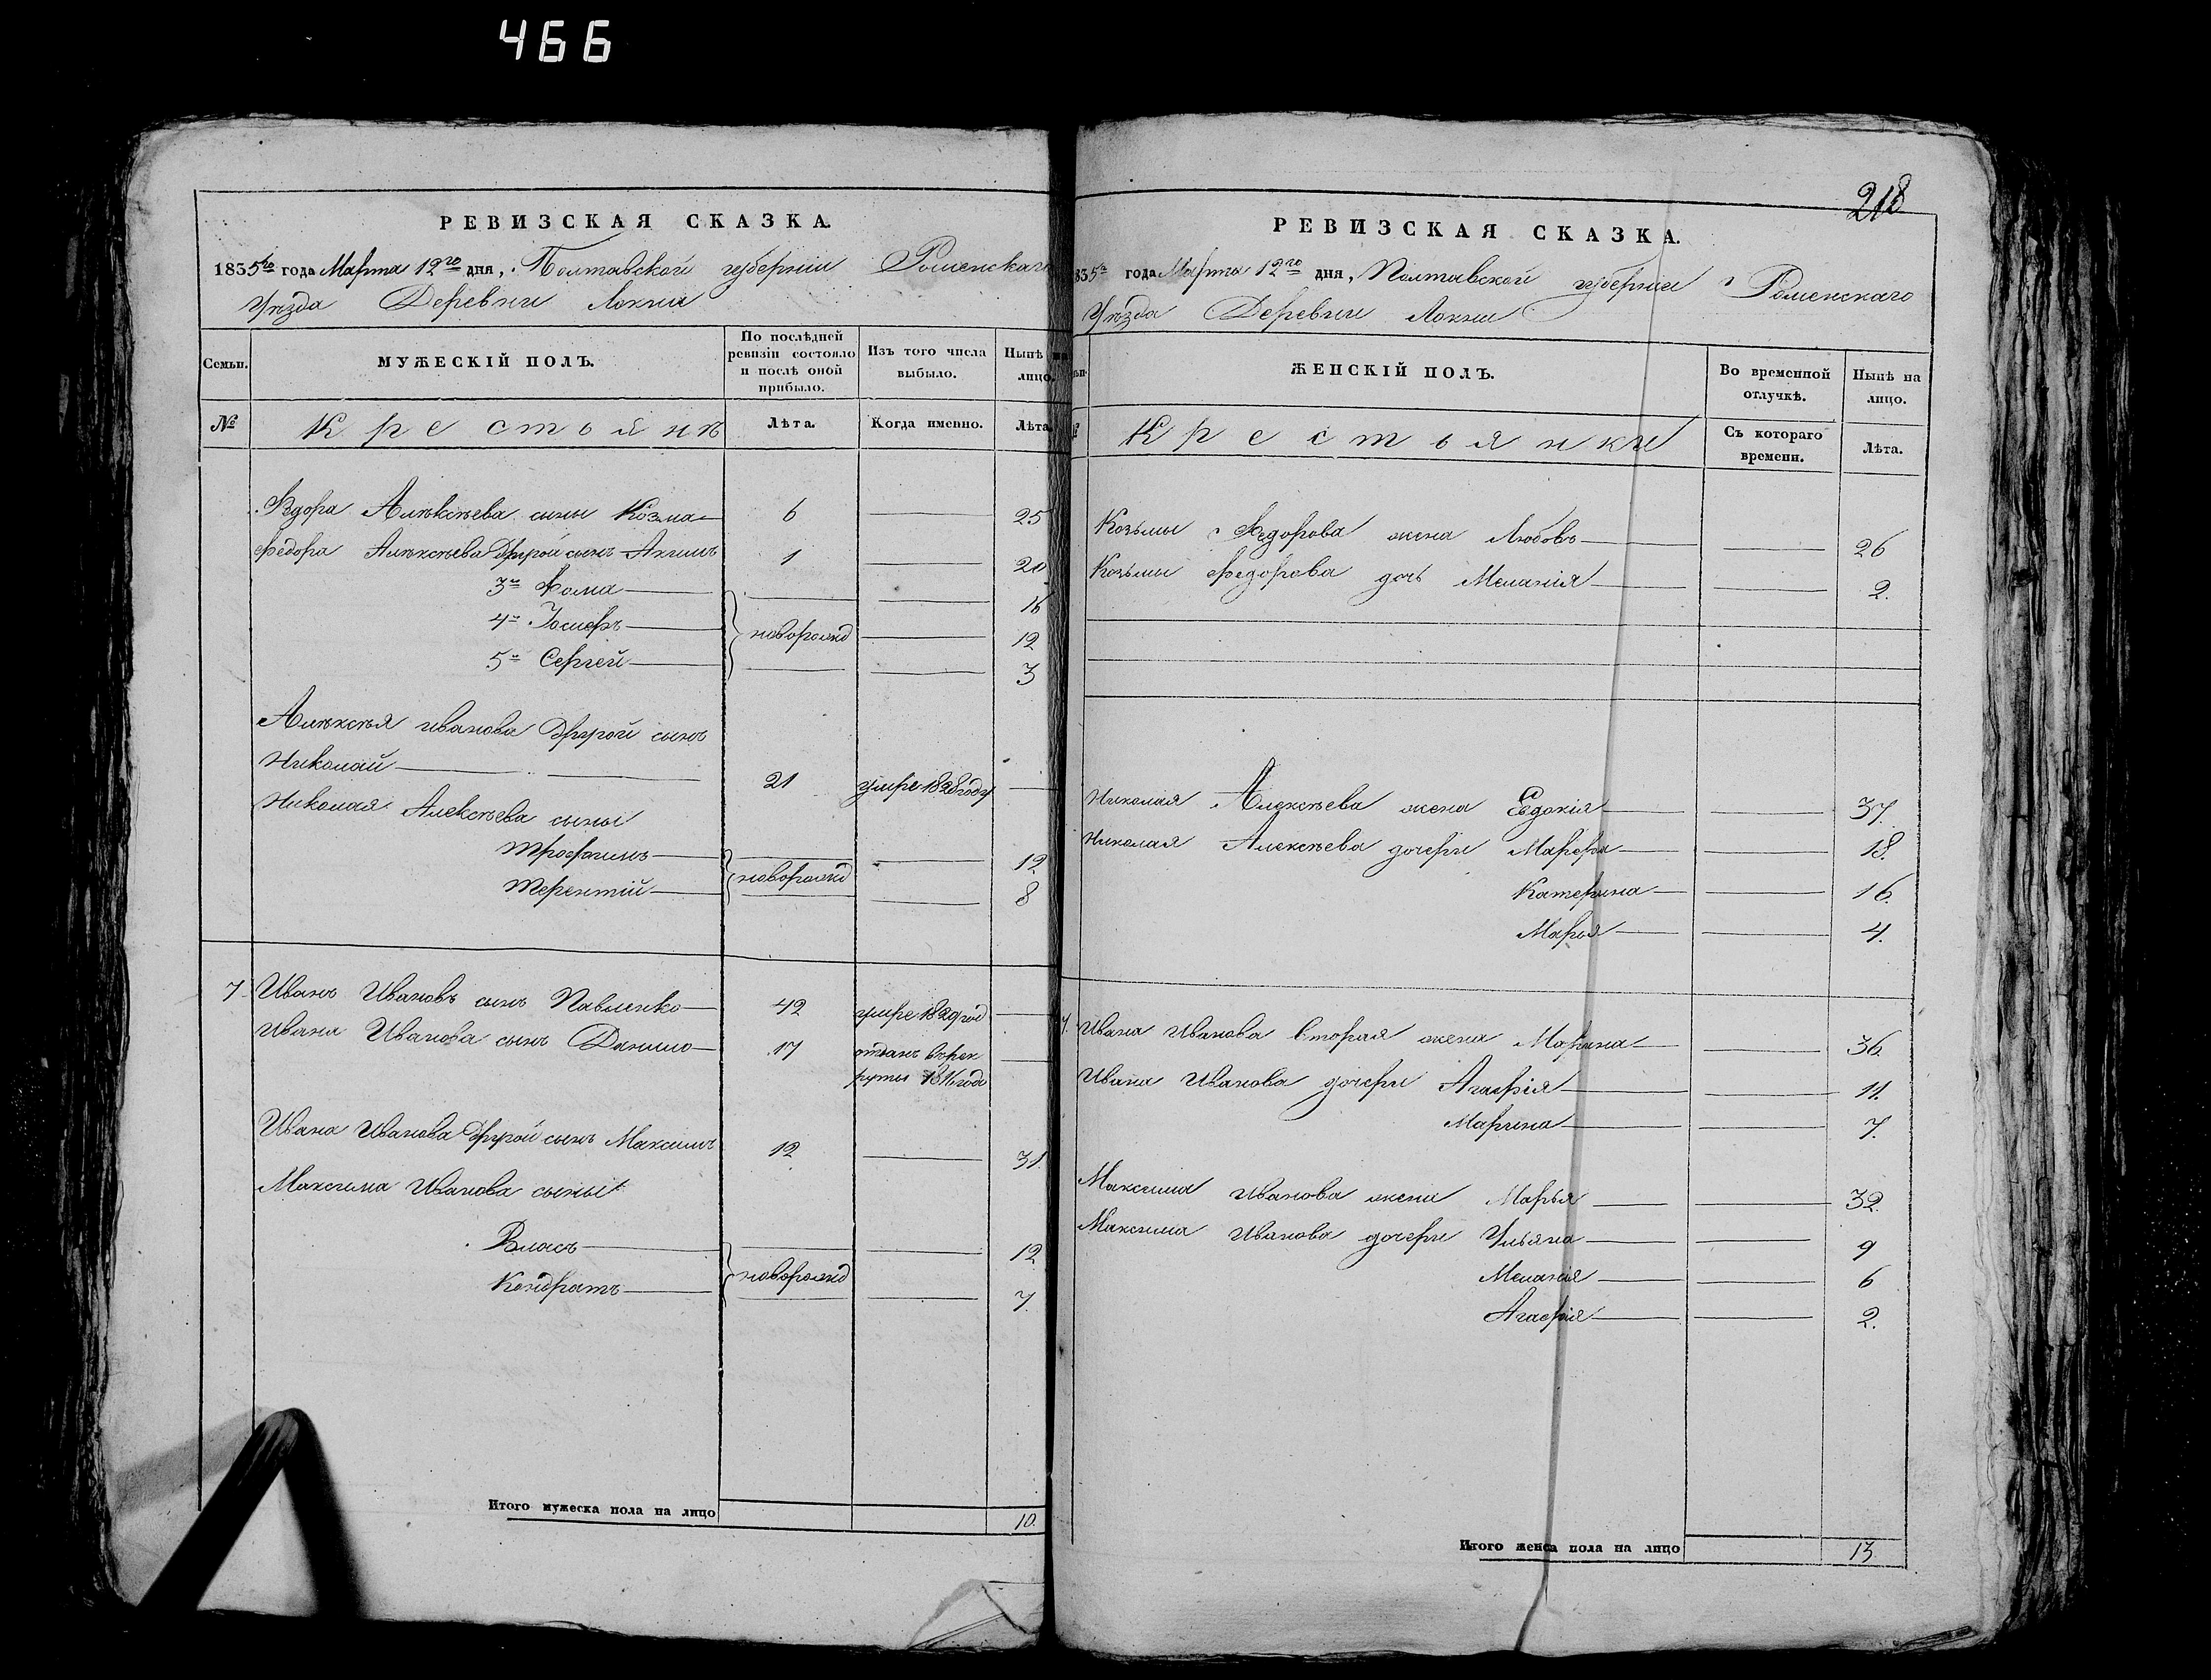 466
РЕВИЗСКАЯ СКАЗКА.
1835го года Марта 12го дня, Полтавской губернии Роменскаго
Уѣзда Деревни Локни
Семьи.
МУЖЕСКІЙ ПОЛЪ.
По послѣдней ревизіи состояло и послѣ оной прибыло.
Изъ того числа выбыло.
Нынѣ на лицо.
№
Крестьянъ
Лѣта.
Когда именно.
Лѣта.
Алѣксѣева сыны Козма 6 25
Федора Алѣксѣева Другой сынъ Акимъ 1 20
3й Фома 16
4й Іосифъ новорожд 12
5й Сергей 3
Алѣксѣя Иванова Другой сынъ
Николай 21 умре 1828 году
Николая Алексѣева сыны
Трофимъ 12
новорожд
Терентій 8
7 Иванъ Ивановъ сынъ Павленко 42 умре 1829 год
Ивана Иванова сынъ Данило 17 отданъ в рек
руты 1816 годо
Ивана Иванова Другой сынъ Максимъ 12 31.
Максима Иванова сыны
Власъ 12
новорожд
Кондратъ 7.
Итого мужеска пола на лицо 10.
218
РЕВИЗСКАЯ СКАЗКА.
835го года Марта 12го дня, Полтавской губерніи Роменскаго
Уѣзда Деревни Локни
ЖЕНСКІЙ ПОЛЪ.
Во временной отлучкѣ.
Нынѣ на лицо.
Крестьянки
Съ котораго времени.
Лѣта.
Козьмы Федорова жена Любовь 26
Козьмы Федорова дочь Меланія 2.
Николая Алексѣева жена Евдокія 37.
Николая Алексѣева дочери Марфа 18.
Катерина 16.
Марья 4.
7. Ивана Иванова Вторая жена Марина 36.
Ивана Иванова дочери Агафія 11.
Марина 7.
Максима Иванова жена Марья 32.
Максима Иванова дочери Ульяна 9
Меланія 6
Агафія 2.
Итого женса пола на лицо 13